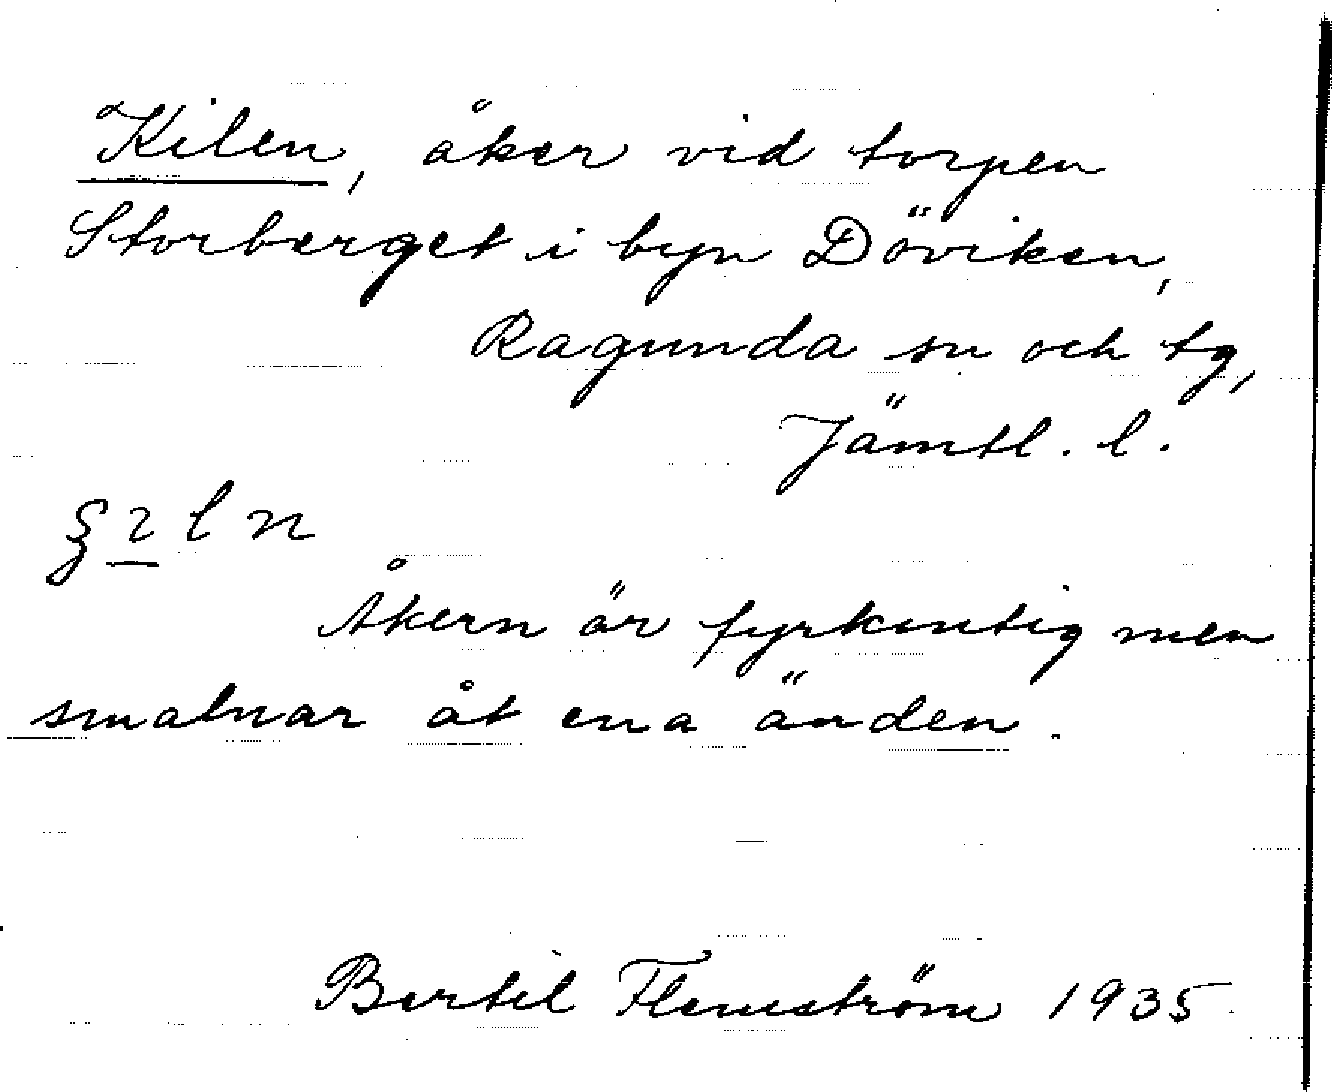 Kilen, åker vid torpen
Storberget i byn Döviken,
Ragunda sn och tg,
Jämtl. l.
Åkern är fyrkantig men
smalnar åt ena änden.
Bertil Flemström 1935